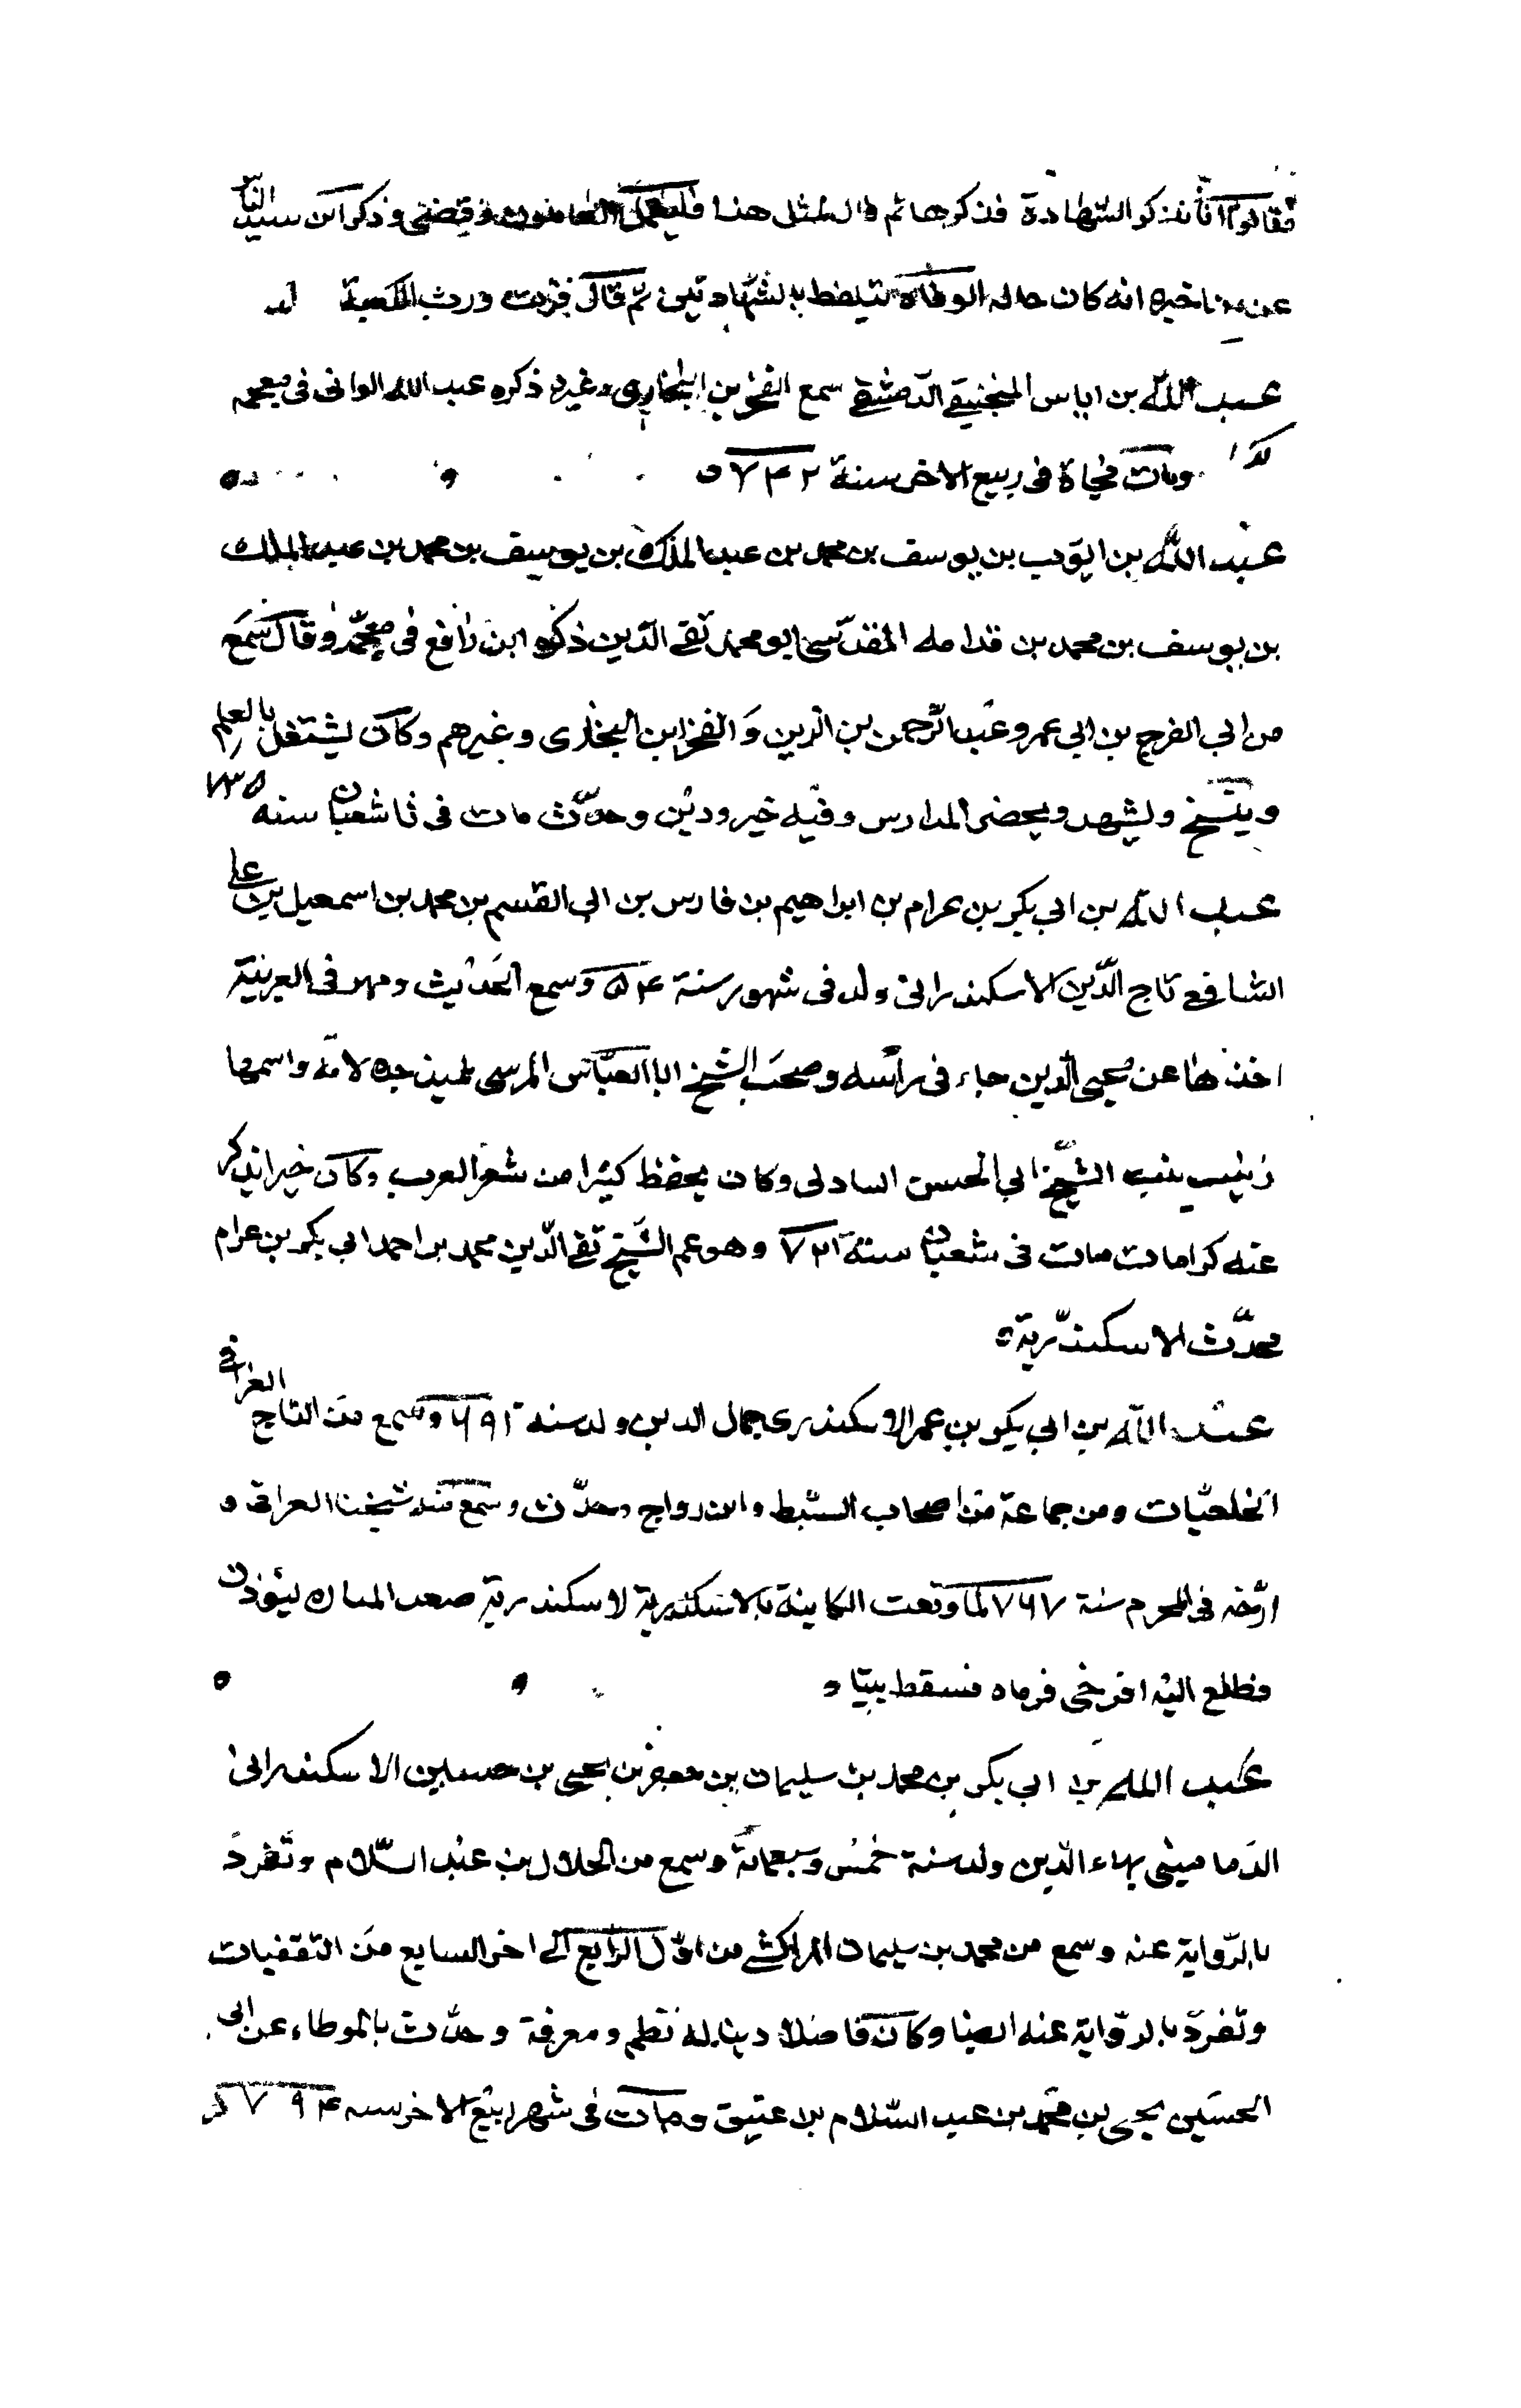 فقالوا انا نذكر الشهادة فذكرها ثم قال لمثل هذا فليعمل العاملون وقضى وذكر ابن سيد الناس
عن من اخبره انه كان حاله الوفاة تيلفظ بالشهادتين ثم قال فزت ورب الكعبة
عبد الله بن اياس المنجنيقي الدمشقي سمع الفخر بن البخاري وغيره ذكره عبد الله الواني في معجمه
ومات فجاة في ربيع الاخر سنة ٧٤٢ ه
عبد الله بن ايوب بن يوسف بن محمد بن عبد الملك بن يوسف بن محمد بن عبد الملك
بن يوسف بن محمد بن قدامه المقدسي ابو محمد تقي الدين ذكره ابن رافع في معجمه وقال سمع
من ابي الفرج بن ابي عمر وعبد الرحمن بن الزين والفخر ابن البخاري وغيرهم وكان يشتغل بالعلم
وينسخ ويشهد ويحضر المدارس وفيه خير ودين وحدث مات في شعبان سنه ٧٣٥
عبد الله بن ابي بكر بن عرام بن ابراهيم بن فارس بن ابي القسم بن محمد بن اسمعيل بن علي
الشافعي تاج الدين الاسكندراني ولد في شهور سنة ٥٤ وسمع الحديث ومهر في العربية
اخذها عن محيي الدين حاء في راسه وصحب الشيخ ابا العباس المرسي تلميذ جده لامه واسمها
زينب بنت الشيخ ابي الحسن السادلي وكان يحفظ كثيرا من شعر العرب وكان خيرا يذكر
عنه كرامات مات في شعبان سنة ٧٢١ وهو عم الشيخ تقي الدين محمد بن احمد ابي بكر بن عرام
محدث الاسكندرية ه
عبد الله بن ابي بكر بن عمر الاسكندري جمال الدين ولد سنه ٦٩١ وسمع من التاج الغرافي
الخلعيات ومن جماعة من اصحاب السبط وابن رواج وحدث وسمع منه شيخنا العراقي و
ارخه في المحرم سنة ٧٦٧ لما وقعت الكاينة بالاسكندرية لاسكندرية صعد المنارة ليؤذن
فطلع اليه افرنجي فرماه فسقط ميتا ه
عبد الله بن ابي بكر بن محمد بن سليمان بن جعفر بن يحيى بن حسين الاسكندراني
الدماميني بهاء الدين ولد سنة خمس وسبعماية وسمع من الجلال بن عبد السلام وتفرد
بالرواية عنه وسمع من محمد بن سليمان المراكشي من اول الرابع الى اخر السابع من الثقفيات
وتفرد بالرواية عنه ايضا وكان فاضلا دينا له نظم ومعرفة وحدث بالموطاء عن ابي
الحسين يحيى بن محمد بن عبد السلام بلا عتيق ومات في شهر ربيع الاخر سنه ٧٩٤